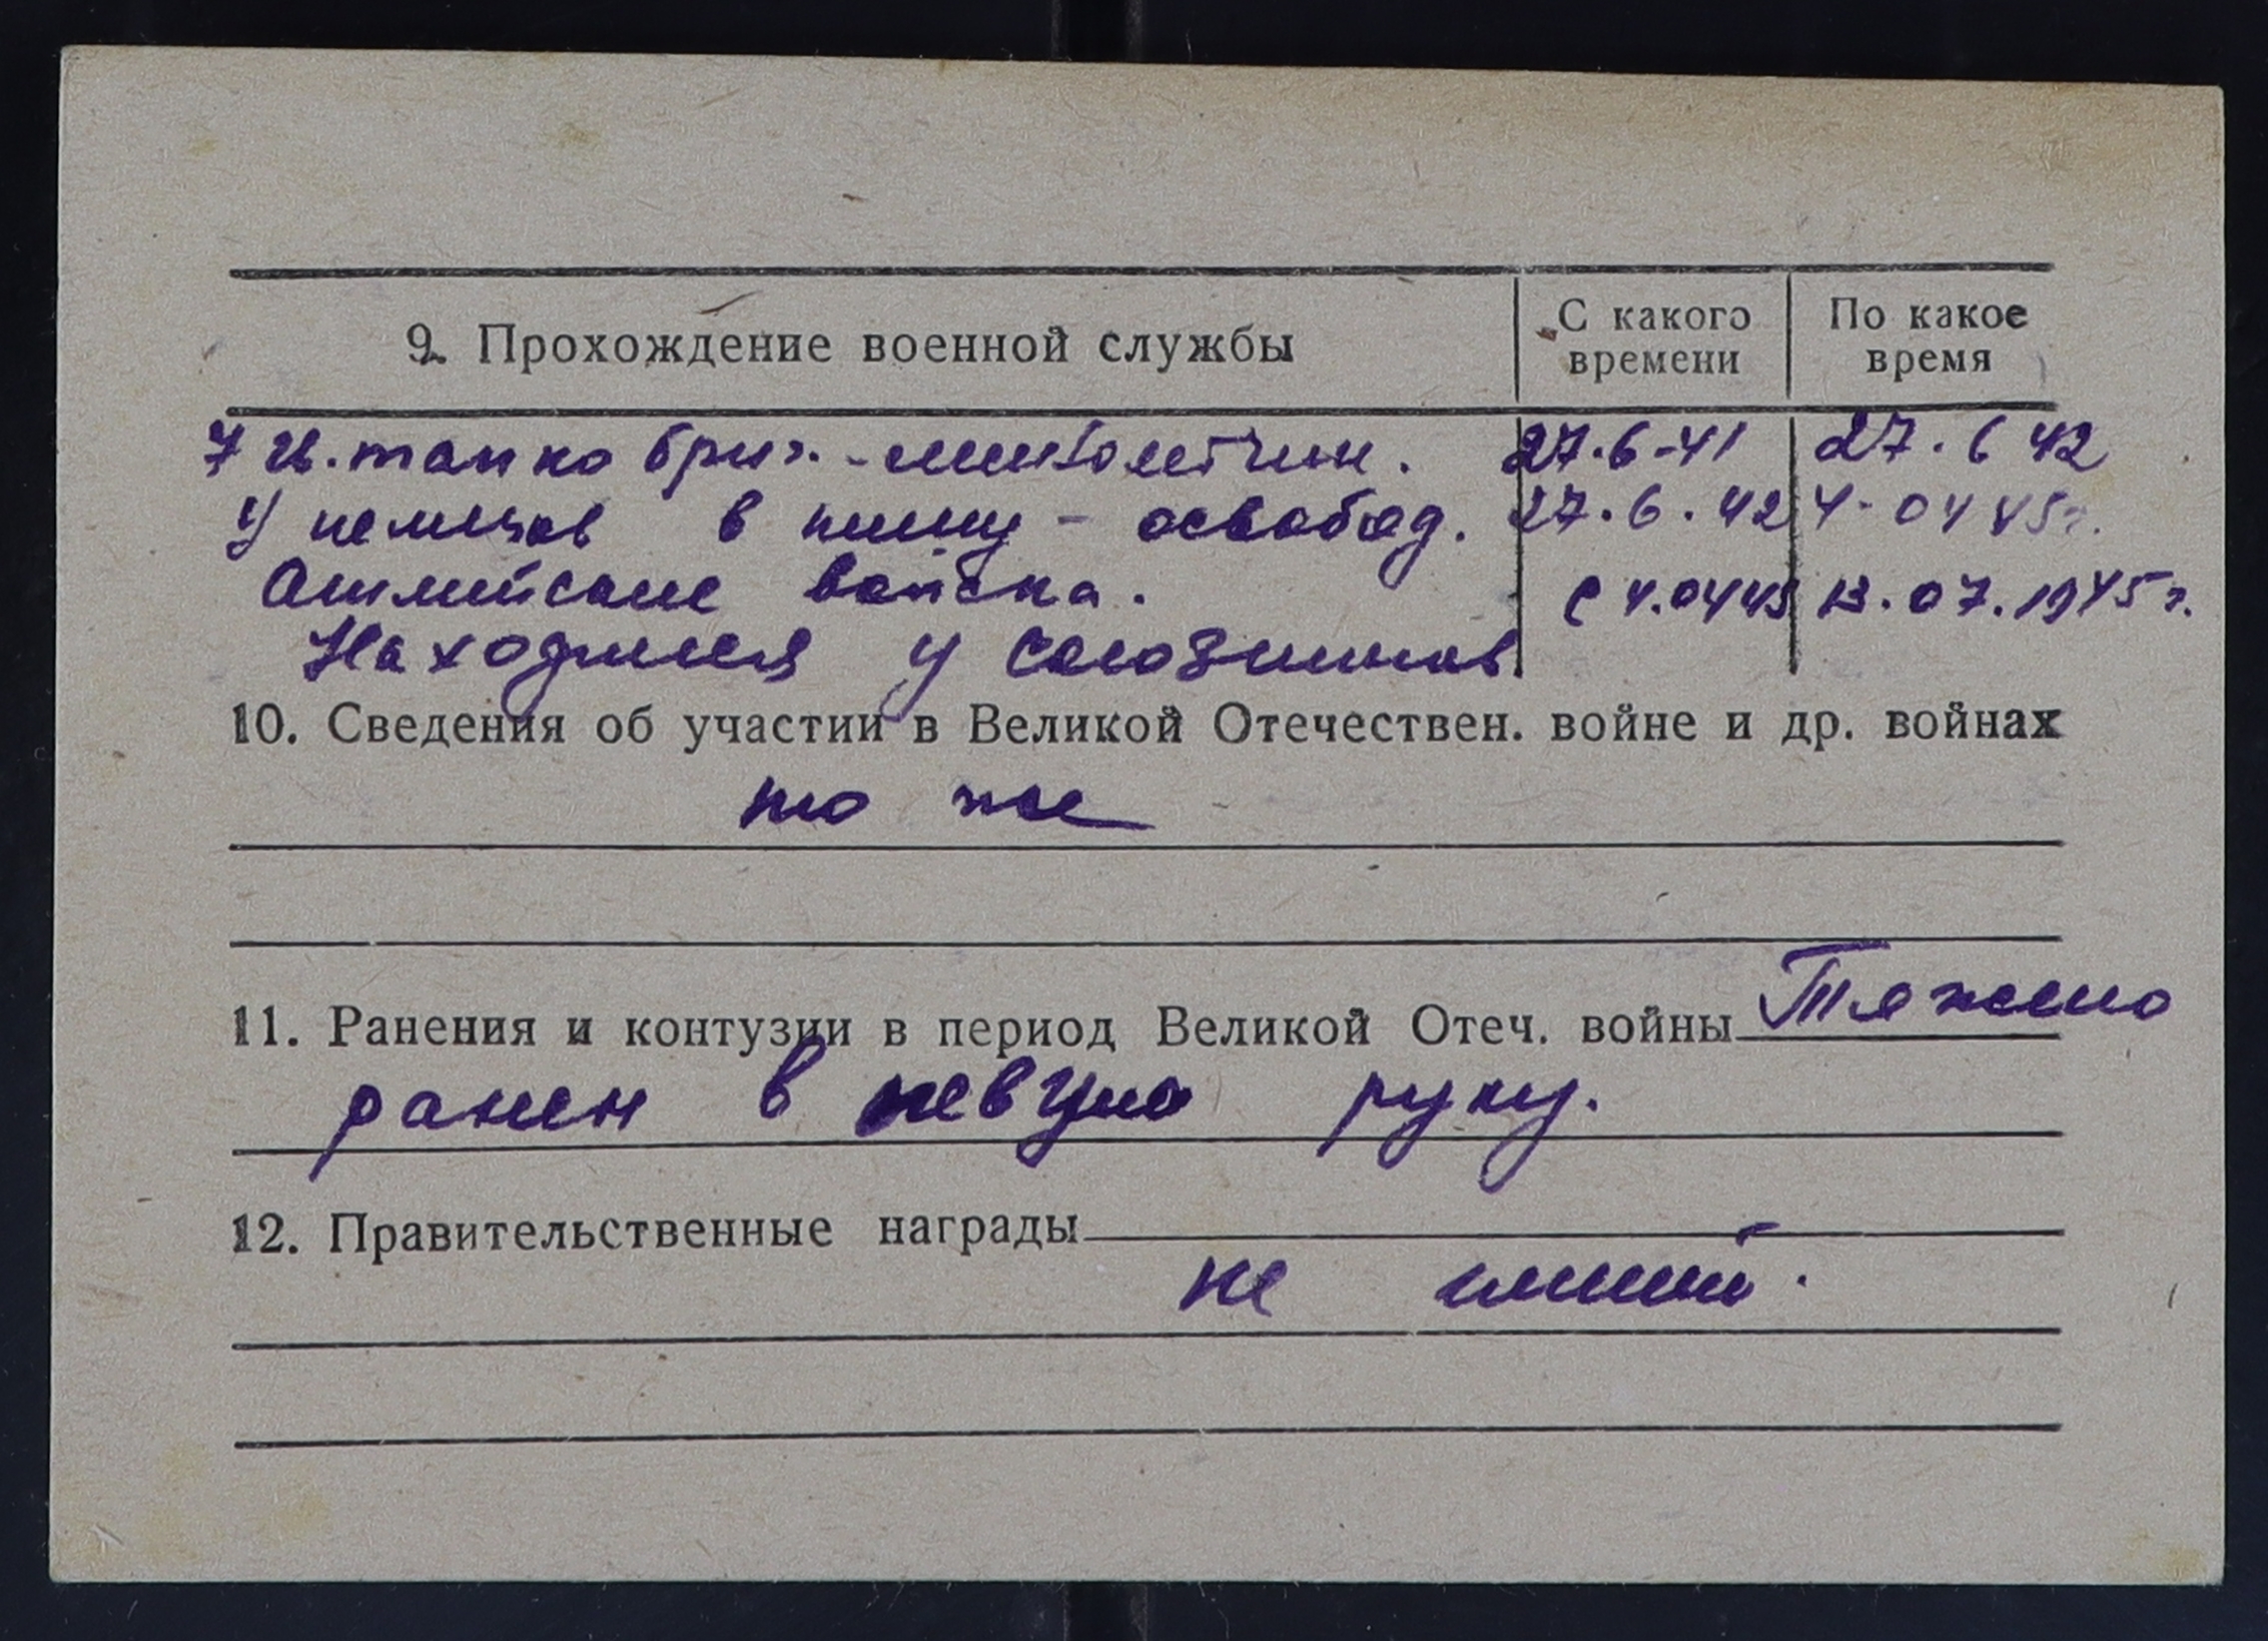 9. Прохождение военной службы
С какого времени
По какое время
7 гв. танко бриг. - минометчик. 27.6-41 27.6 42
У немцов в плену - освобод. 27.6.42 4-04 45г.
Английские войска. с 4.04 45 13.07.1945г.
Находился у союзников
10. Сведения об участии в Великой Отечествен. войне и др. войнах
то же
11. Ранения и контузии в период Великой Отеч. войны Тяжело
ранен в левую руку.
12. Правительственные награды
не имеет.